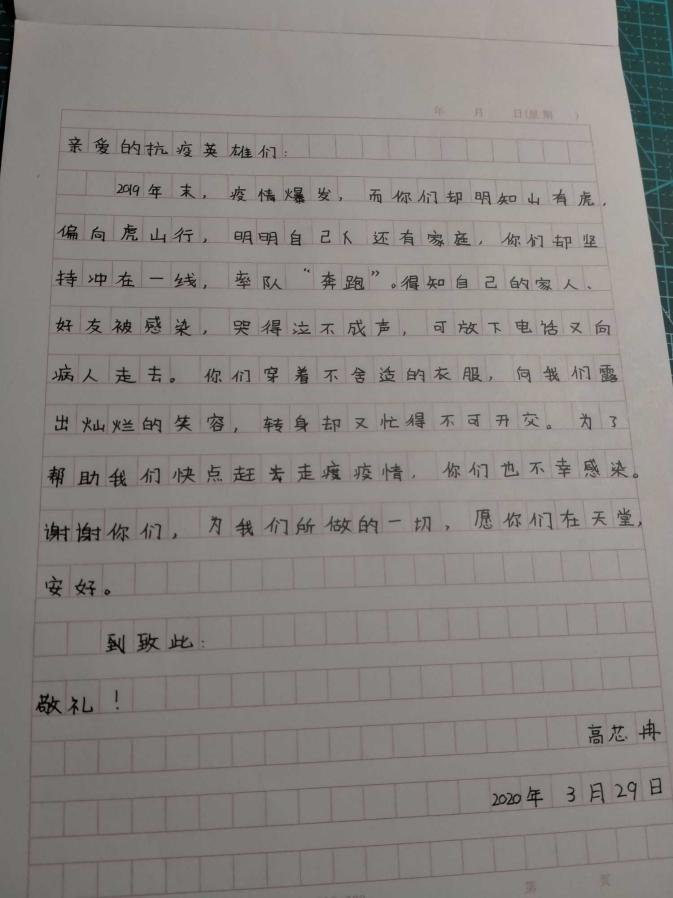 年 月 日(星期 )
亲爱的抗疫英雄们：
2019年末，疫情爆发，而你们却明知山有虎，
偏向虎山行，明明自己人还有家庭，你们却坚
持冲在一线，率队“奔跑”。得知自己的家人、
好友被感染，哭得泣不成声，可放下电话又向
病人走去。你们穿着不舍适的衣服，向我们露
出灿烂的笑容，转身却又忙得不可开交。为了
帮助我们快点赶去走疫情，你们也不幸感染。
谢谢你们，为我们所做的一切，愿你们在天堂，
安好。
到致此：
敬礼！
高芯冉
2020年3月29日
第 页